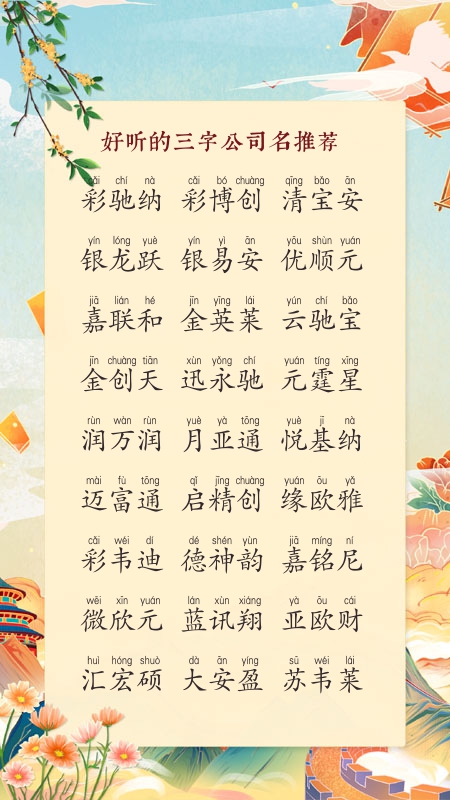 好听的三字公司名推荐
cǎi chí nà cǎi bó chuàng qīng bǎo ān
彩驰纳 彩博创 清宝安
yín lóng yuè yín yì ān yōu shùn yuán
银龙跃 银易安 优顺元
jiā lián hé jīn yīng lái yún chí bǎo
嘉联和 金英莱 云驰宝
jīn chuàng tiān xùn yǒng chí yuán tíng xīng
金创天 迅永驰 元霆星
rùn wàn rùn yuè yà tōng yuè jī nà
润万润 月亚通 悦基纳
mài fù tōng qǐ jīng chuàng yuán ōu yǎ
迈富通 启精创 缘欧雅
cǎi wéi dí dé shén yùn jiā míng ní
彩韦迪 德神韵 嘉铭尼
wēi xīn yuán lán xùn xiáng yà ōu cái
微欣元 蓝讯翔 亚欧财
huì hóng shuò dà ān yíng sū wéi lái
汇宏硕 大安盈 苏韦莱